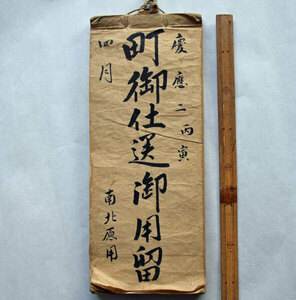 慶應二丙寅
町御仕送御用留
四月
南北原用